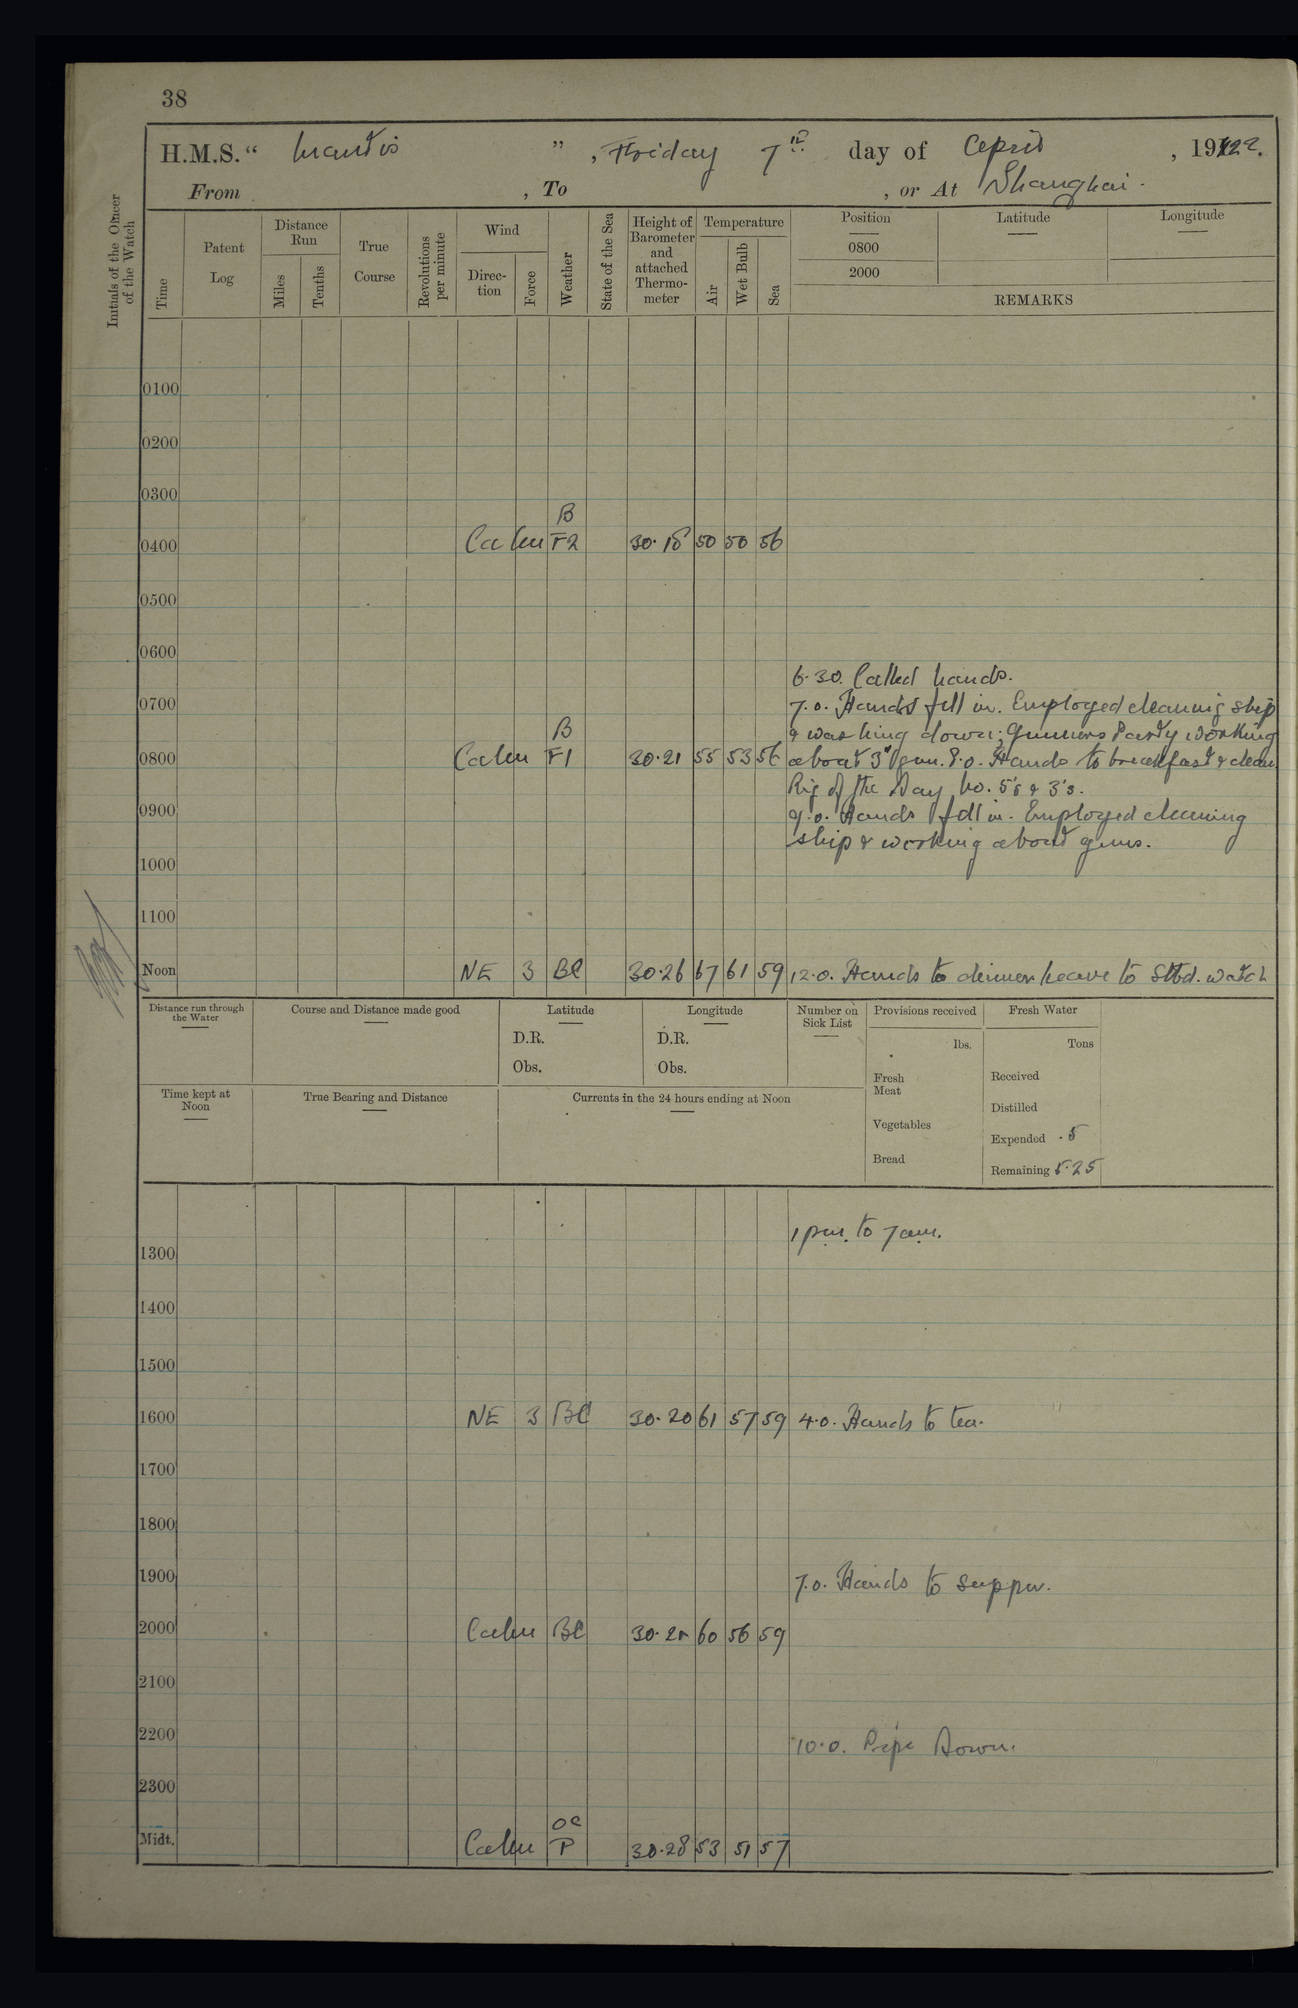 38
H.M.S. "Mantis", Friday 7th day of April, 1922.
From , To , or At Shanghai.
Initials of the Officer of the Watch
Time
Patent Log
Distance Run
Miles
Tenths
True Course
Revolutions per minute
Wind
Direction
Force
Weather
State of the Sea
Height of Barometer and attached Thermometer
Temperature
Air
Wet Bulb
Sea
Position
Latitude
Longitude
0800
2000
REMARKS
0100
0200
0300
B
0400 Calm F2 30.18 50 50 56
0500
0600
6.30. Called hands.
0700 7.0. Hands fell in. Employed cleaning ship
B & washing down; Gunners Party working
0800 Calm F1 30.21 55 53 56 about 3" gun. 8.0. Hands to breakfast & clean
Rig of the Day No. 5's & 3's.
0900 9.0. Hands fell in. Employed cleaning
ship & working about guns.
1000
1100
Noon NE 3 BC 30.26 67 61 59 12.0. Hands to dinner leave to Stbd. watch
Distance run through the Water
Course and Distance made good
Latitude
D.R.
Obs.
Longitude
D.R.
Obs.
Number on Sick List
Provisions received
lbs.
Fresh Meat
Vegetables
Bread
Fresh Water
Tons
Received
Distilled
Expended .5
Remaining 5.25
Time kept at Noon
True Bearing and Distance
Currents in the 24 hours ending at Noon
1 pm. to 7 am.
1300
1400
1500
1600 NE 3 BC 30.20 61 57 59 4.0. Hands to tea.
1700
1800
1900 7.0. Hands to supper.
2000 Calm BC 60 56 59
2100
2200 10.0. Pipe Down.
2300
OC
Midt. Calm P 30.28 53 51 57